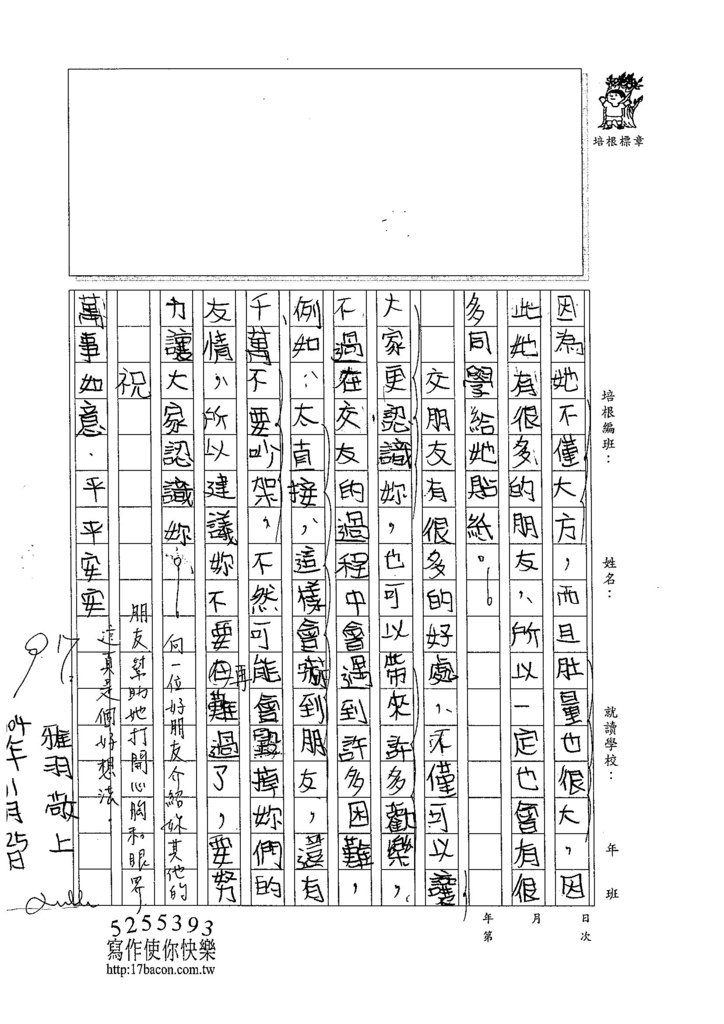 培根標章
培根編班：
姓名：
就讀學校：
年 班
年 月 日
第 次
因為她不僅大方，而且肚量也很大，因
此她有很多的朋友，所以一定也會有很
多同學給她貼紙。
交朋友有很多的好處，不僅可以讓
大家更認識妳，也可以帶來許多歡樂，
不過在交友的過程中會遇到許多困難，
例如：太直接，這樣會嚇到朋友，還有
千萬不要吵架，不然可能會毀掉妳們的
友情，所以建議妳不要在難過了，要努
再
力讓大家認識妳。
向一位好朋友介紹妳其他的
朋友幫助她打開心胸和眼界，
這真是個好想法。
祝
萬事如意、平平安安
雅羽敬上
04年11月25日
97
5255393
寫作使你快樂
http:17bacon.com.tw